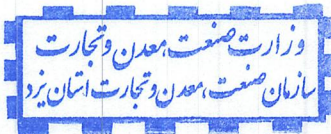 وزارت صنعت،معدن وتجارت
سازمان صنعت،معدن وتجارت استان یزد